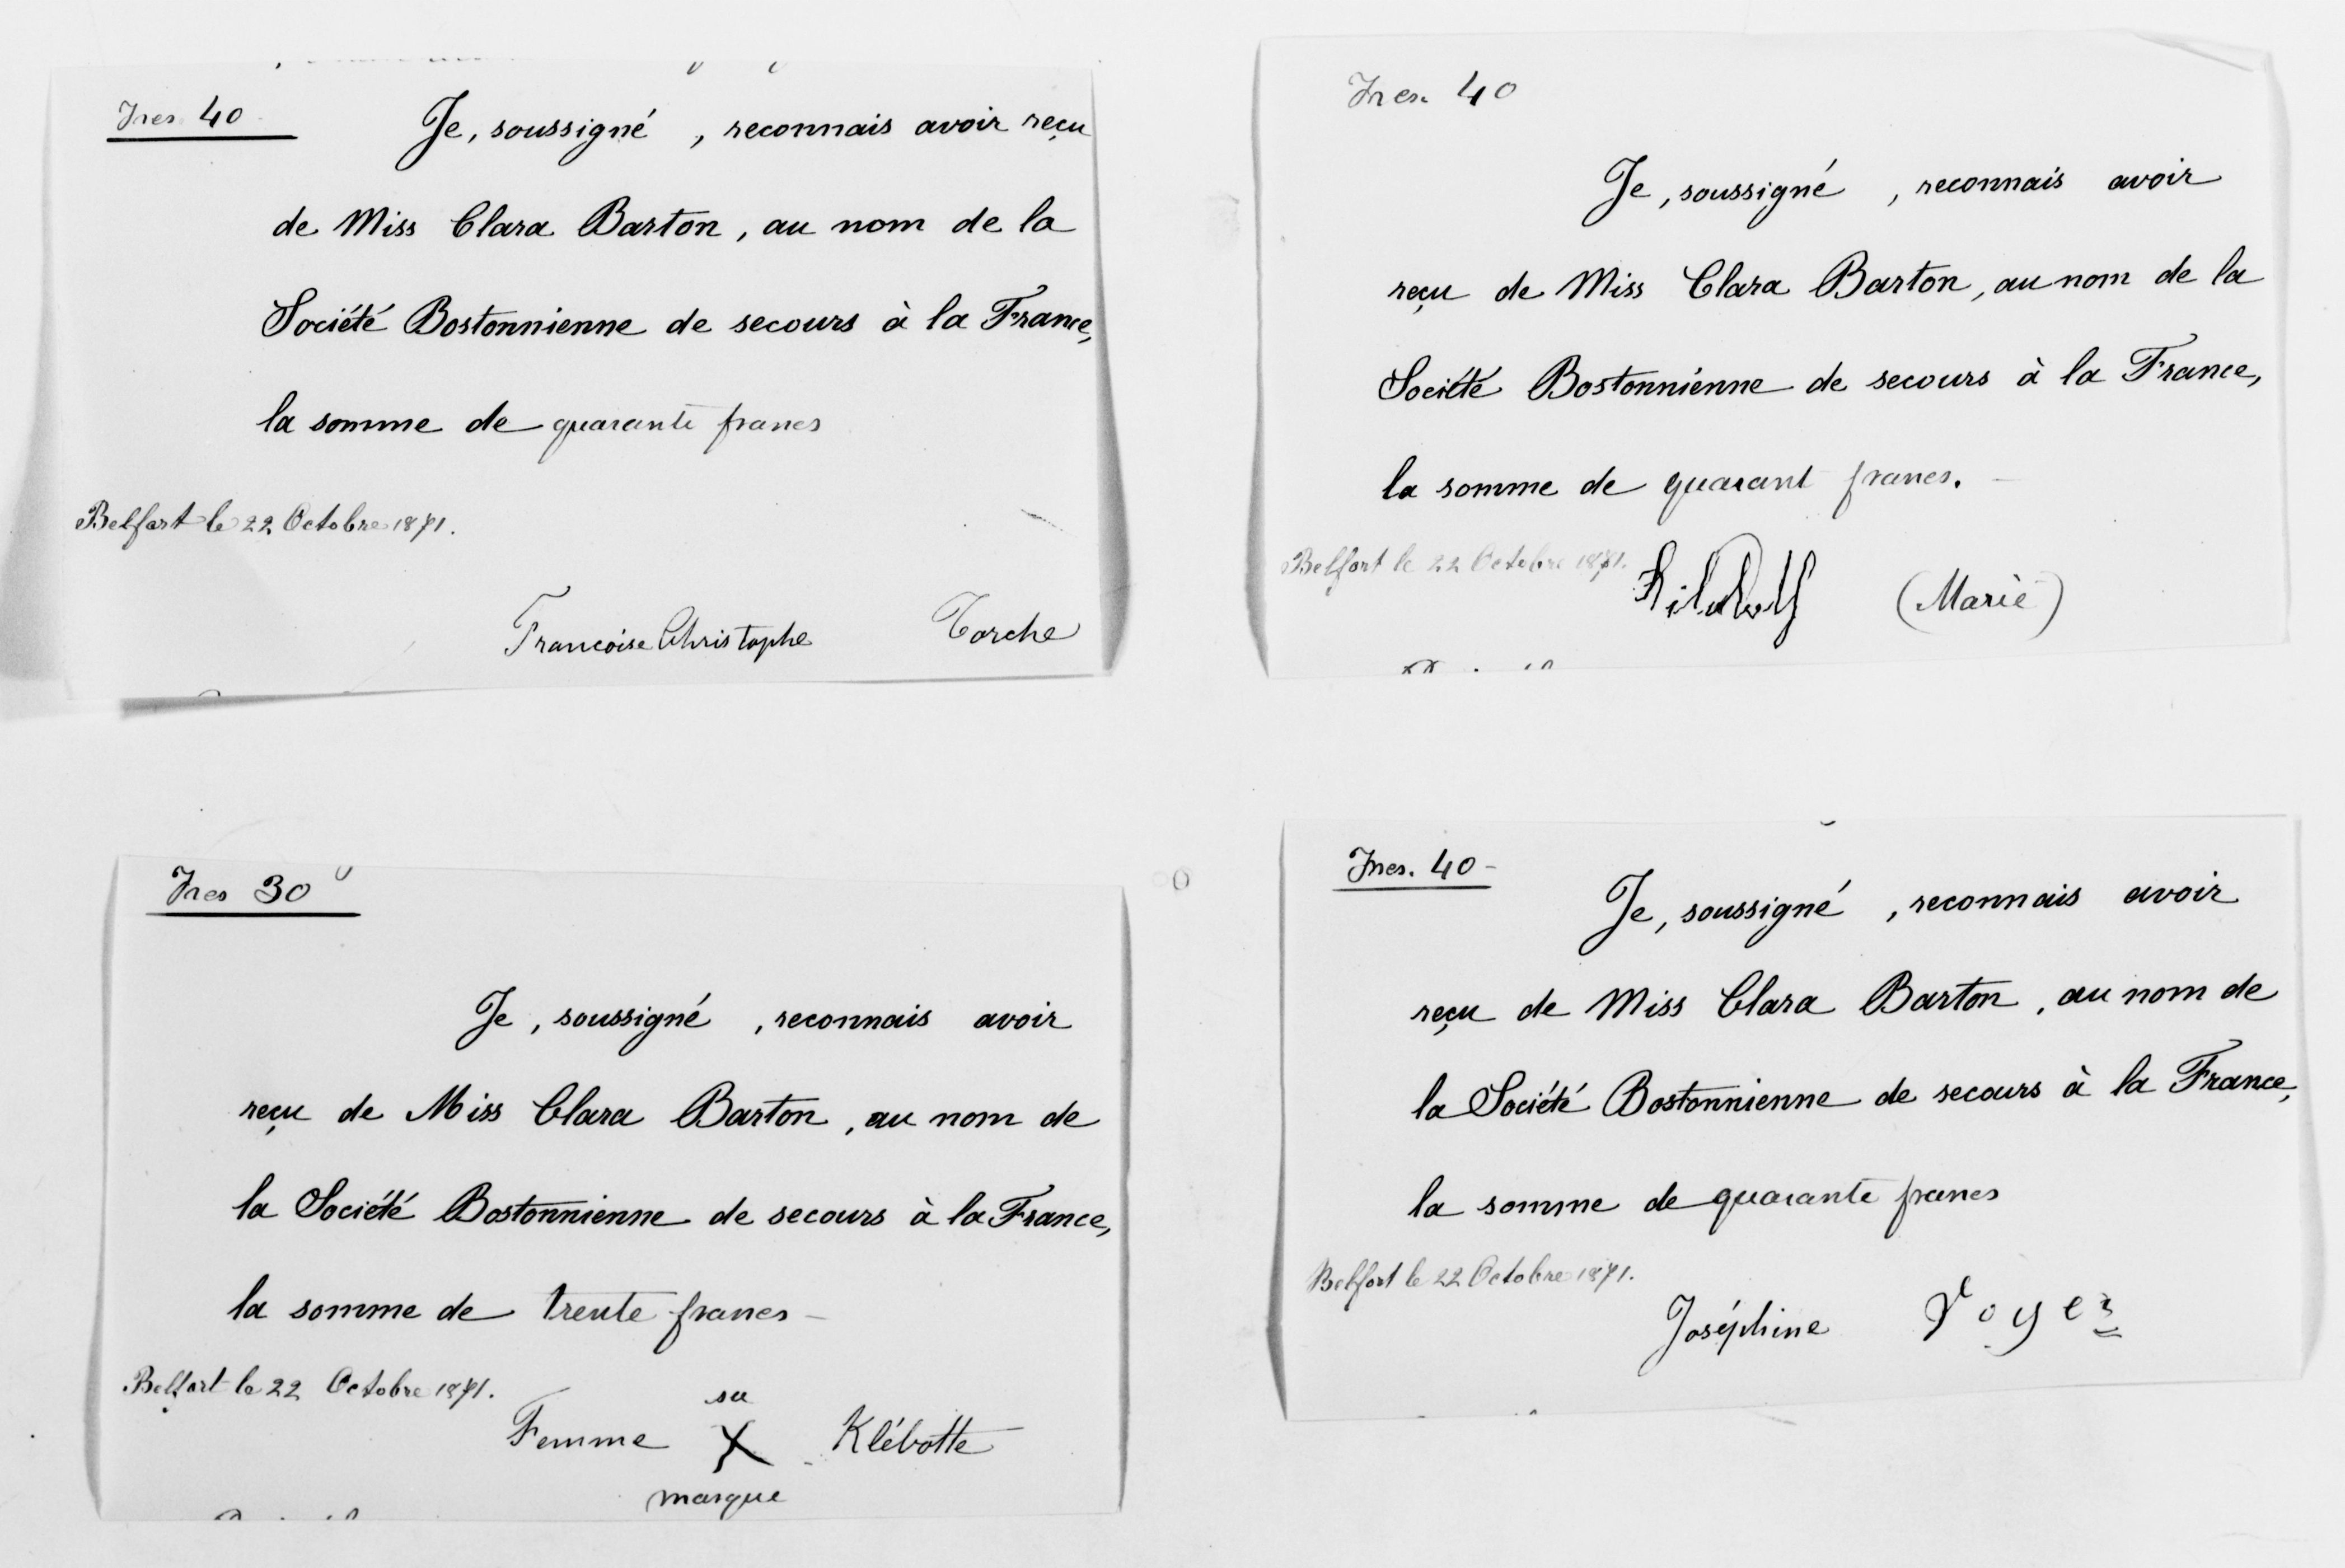 Frcs 40
Je, soussigné , reconnais avoir reçu
de Miss Clara Barton, au nom de la
Société Bostonnienne de secours à la France,
la somme de quarante francs
Belfort le 22 Octobre 1871.
Francoise Christophe Torche
Frcs. 40
Je, soussigné , reconnais avoir
reçu de Miss Clara Barton, au nom de la
Société Bostonnienne de secours à la France,
la somme de quarant francs.
Belfort le 22 Octobre 1871.
(Marie)
Frcs 30
Je, soussigné , reconnais avoir
reçu de Miss Clara Barton, au nom de
la Société Bostonnienne de secours à la France,
la somme de trente francs
Belfort le 22 Octobre 1871.
sa
Femme X Klébotte
marque
Frcs. 40
Je, soussigné , reconnais avoir
reçu de Miss Clara Barton, au nom de
la Société Bostonnienne de secours à la France,
la somme de quarante francs
Belfort le 22 Octobre 1871.
Joséphine